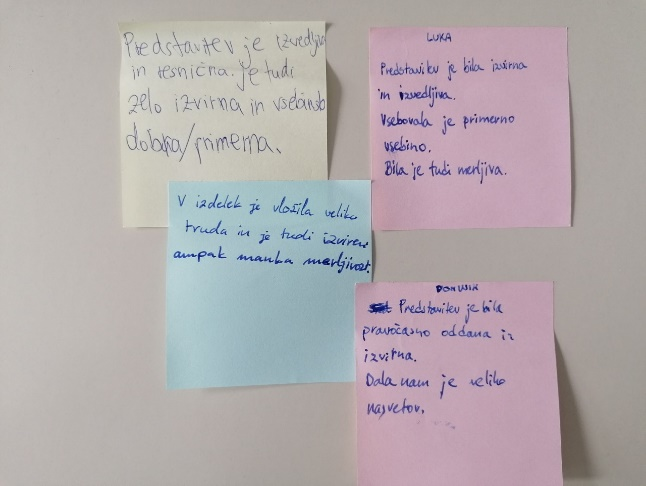 Predstavitev je izvedljiva
in resnična. Je tudi
zelo izvirna in vsebinsko
dobra/primerna.
LUKA
Predstavitev je bila izvirna
in izvedljiva.
Vsebovala je primerno
vsebino.
Bila je tudi merljiva.
V izdelek je vložila veliko
truda in je tudi izviren
ampak manka merljivost.
Predstavitev je bila
pravočasno oddana in
izvirna.
Dala nam je veliko
nasvetov.